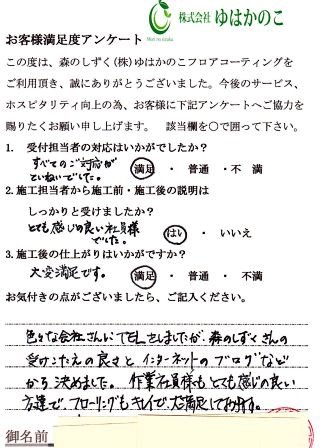 株式会社 ゆはかのこ
Mori no sizuku
お客様満足度アンケート
この度は、森のしずく(株)ゆはかのこフロアコーティングを
ご利用頂き、誠にありがとうございました。今後のサービス、
ホスピタリティ向上の為、お客様に下記アンケートへご協力を
賜りたくお願い申し上げます。 該当欄を〇で囲って下さい。
1. 受付担当者の対応はいかがでしたか?
すべてのご対応が
ていねいでした。
満足 ・ 普通 ・不 満
2.施工担当者から施工前・施工後の説明は
しっかりと受けましたか?
とても感じの良い社員様
でした。
はい ・ いいえ
3.施工後の仕上がりはいかがですか?
大変満足です。
満足 ・ 普通 ・ 不満
お気付きの点がございましたら、ご記入ください。
色々な会社さんにTELをしましたが、森のしずくさんの
受けこたえの良さとインターネットのブログなど
から決めました。作業社員様もとても感じの良い
方達で、フローリングもキレイで大満足しております。
御名前